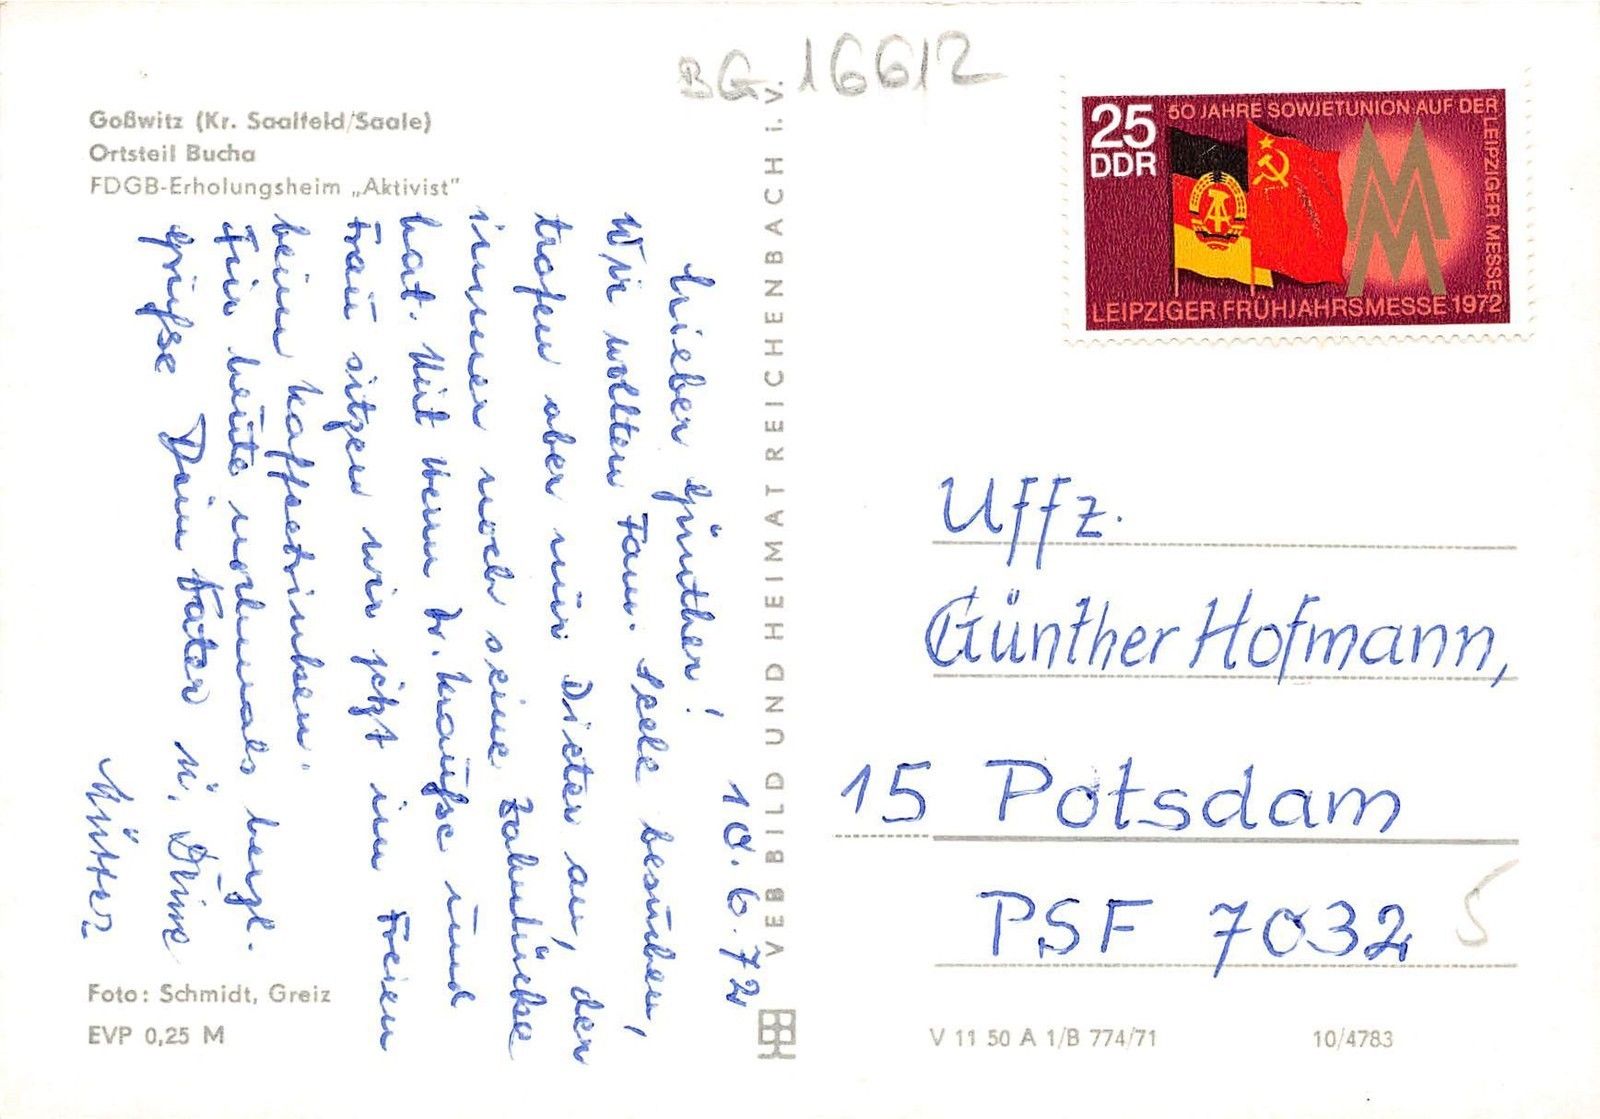 BG 16612
Goßwitz (Kr. Saalfeld/Saale)
Ortsteil Bucha
FDGB-Erholungsheim „Aktivist"
10.6.72
Lieber Günther!
Wir wollten Fam. Seele besuchen,
trafen aber nur Dieter an, der
immer noch seine Zahnlücke
hat. Mit Herrn Dr. Krauße und
Frau sitzen wir jetzt im Freien
beim Kaffeetrinken.
Für heute nochmals herzl.
Grüße Dein Vater u. Deine
Mutter
VEB BILD UND HEIMAT REICHENBACH i. V.
Foto: Schmidt, Greiz
EVP 0,25 M
25
DDR
50 JAHRE SOWJETUNION AUF DER
LEIPZIGER MESSE
MM
LEIPZIGER FRÜHJAHRSMESSE 1972
Uffz.
Günther Hofmann,
15 Potsdam
PSF 7032
5
V 11 50 A 1/B 774/71
10/4783